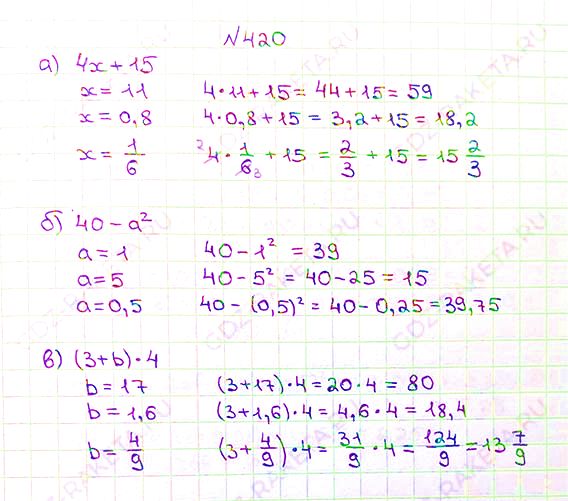 №420
а) 4x+15
x=11 4·11+15=44+15=59
x=0,8 4·0,8+15=3,2+15=18,2
x=1/6 ²4·1/6₃+15=2/3+15=15 2/3
б) 40-a²
a=1 40-1²=39
a=5 40-5²=40-25=15
a=0,5 40-(0,5)²=40-0,25=39,75
в) (3+b)·4
b=17 (3+17)·4=20·4=80
b=1,6 (3+1,6)·4=4,6·4=18,4
b=4/9 (3+4/9)·4=31/9·4=124/9=13 7/9
GDZ-RAKETA.RU